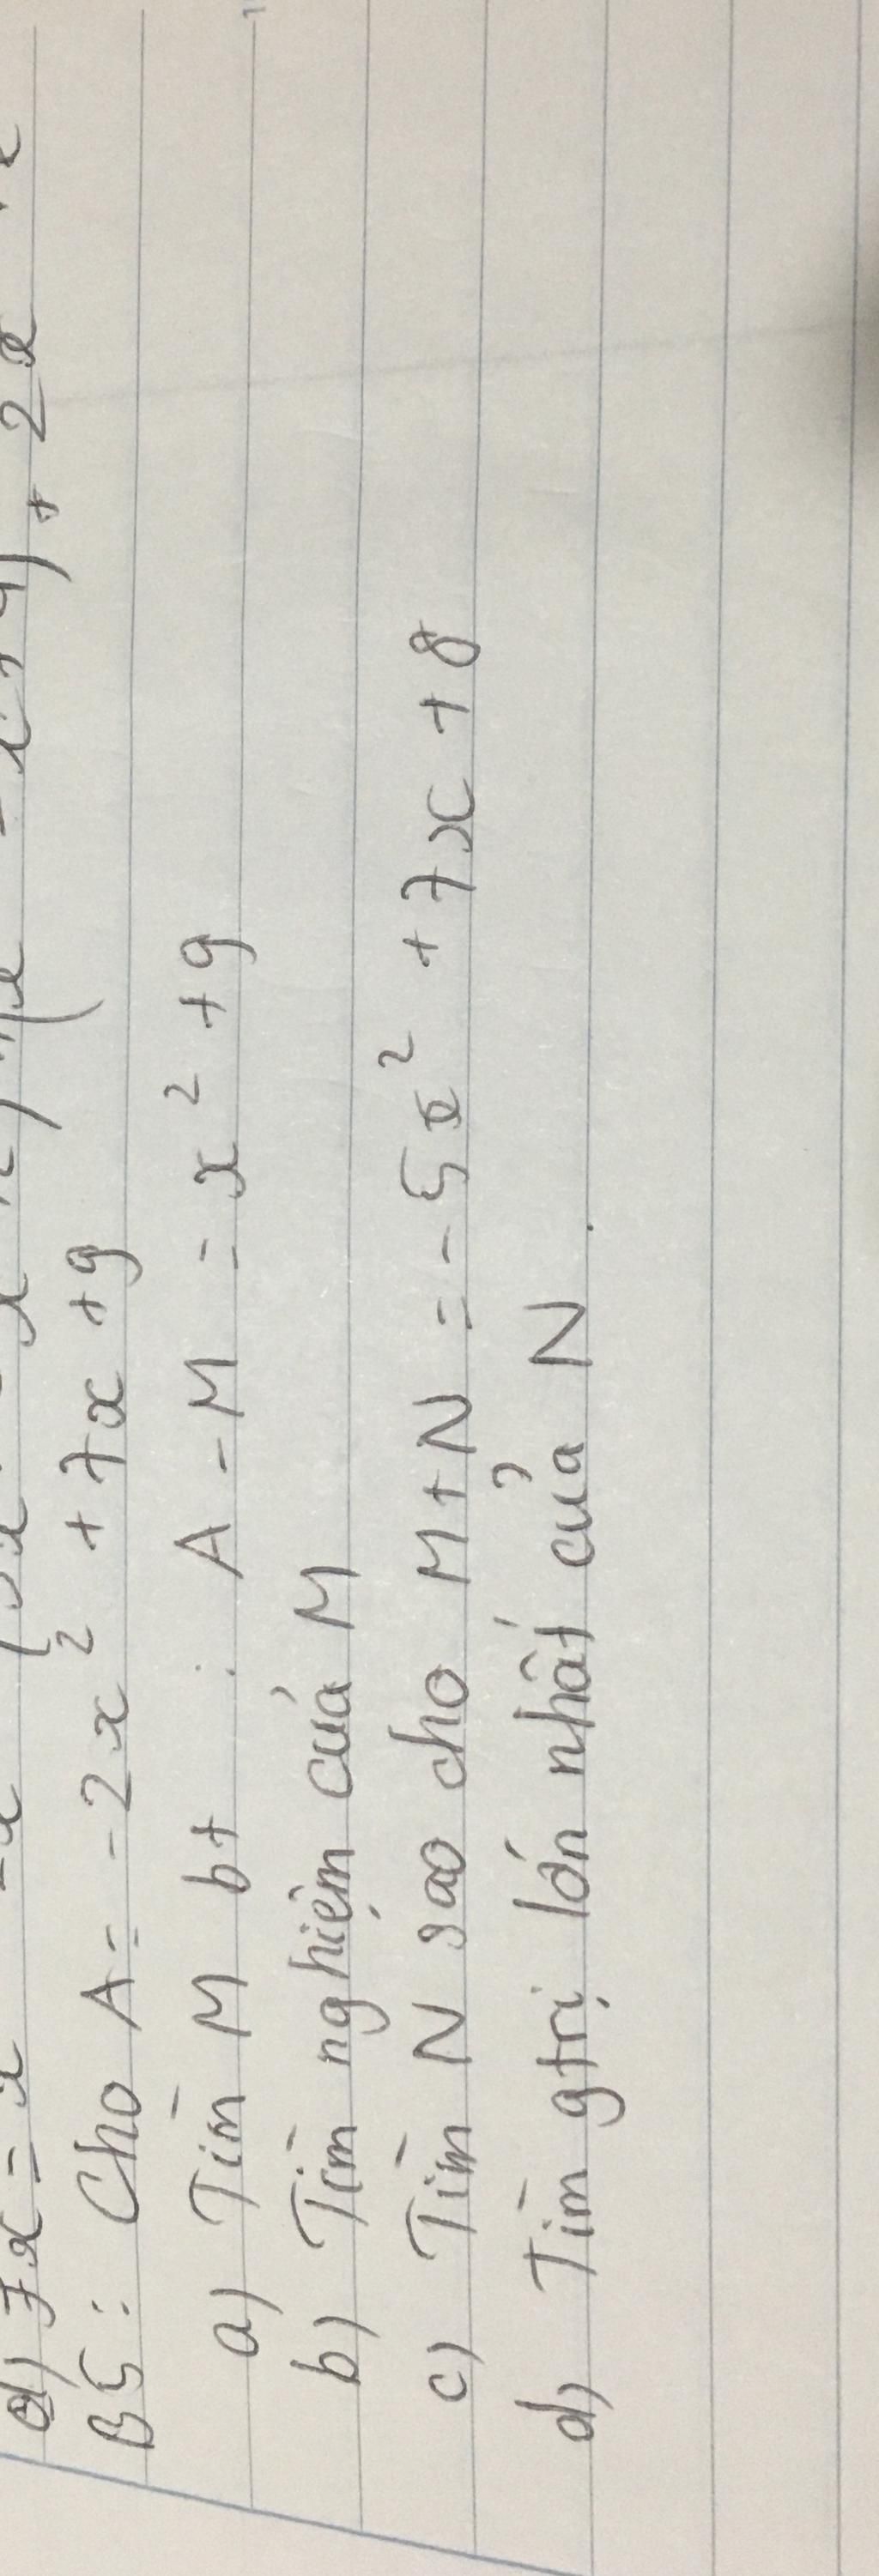 d) 7x = x
B5 : Cho A = -2x² + 7x + 9
a) Tìm M bt : A - M = x² + 9
b) Tìm nghiệm của M
c) Tìm N sao cho M + N = - 5x² + 7x + 8
d) Tìm gtrị lớn nhất của N.